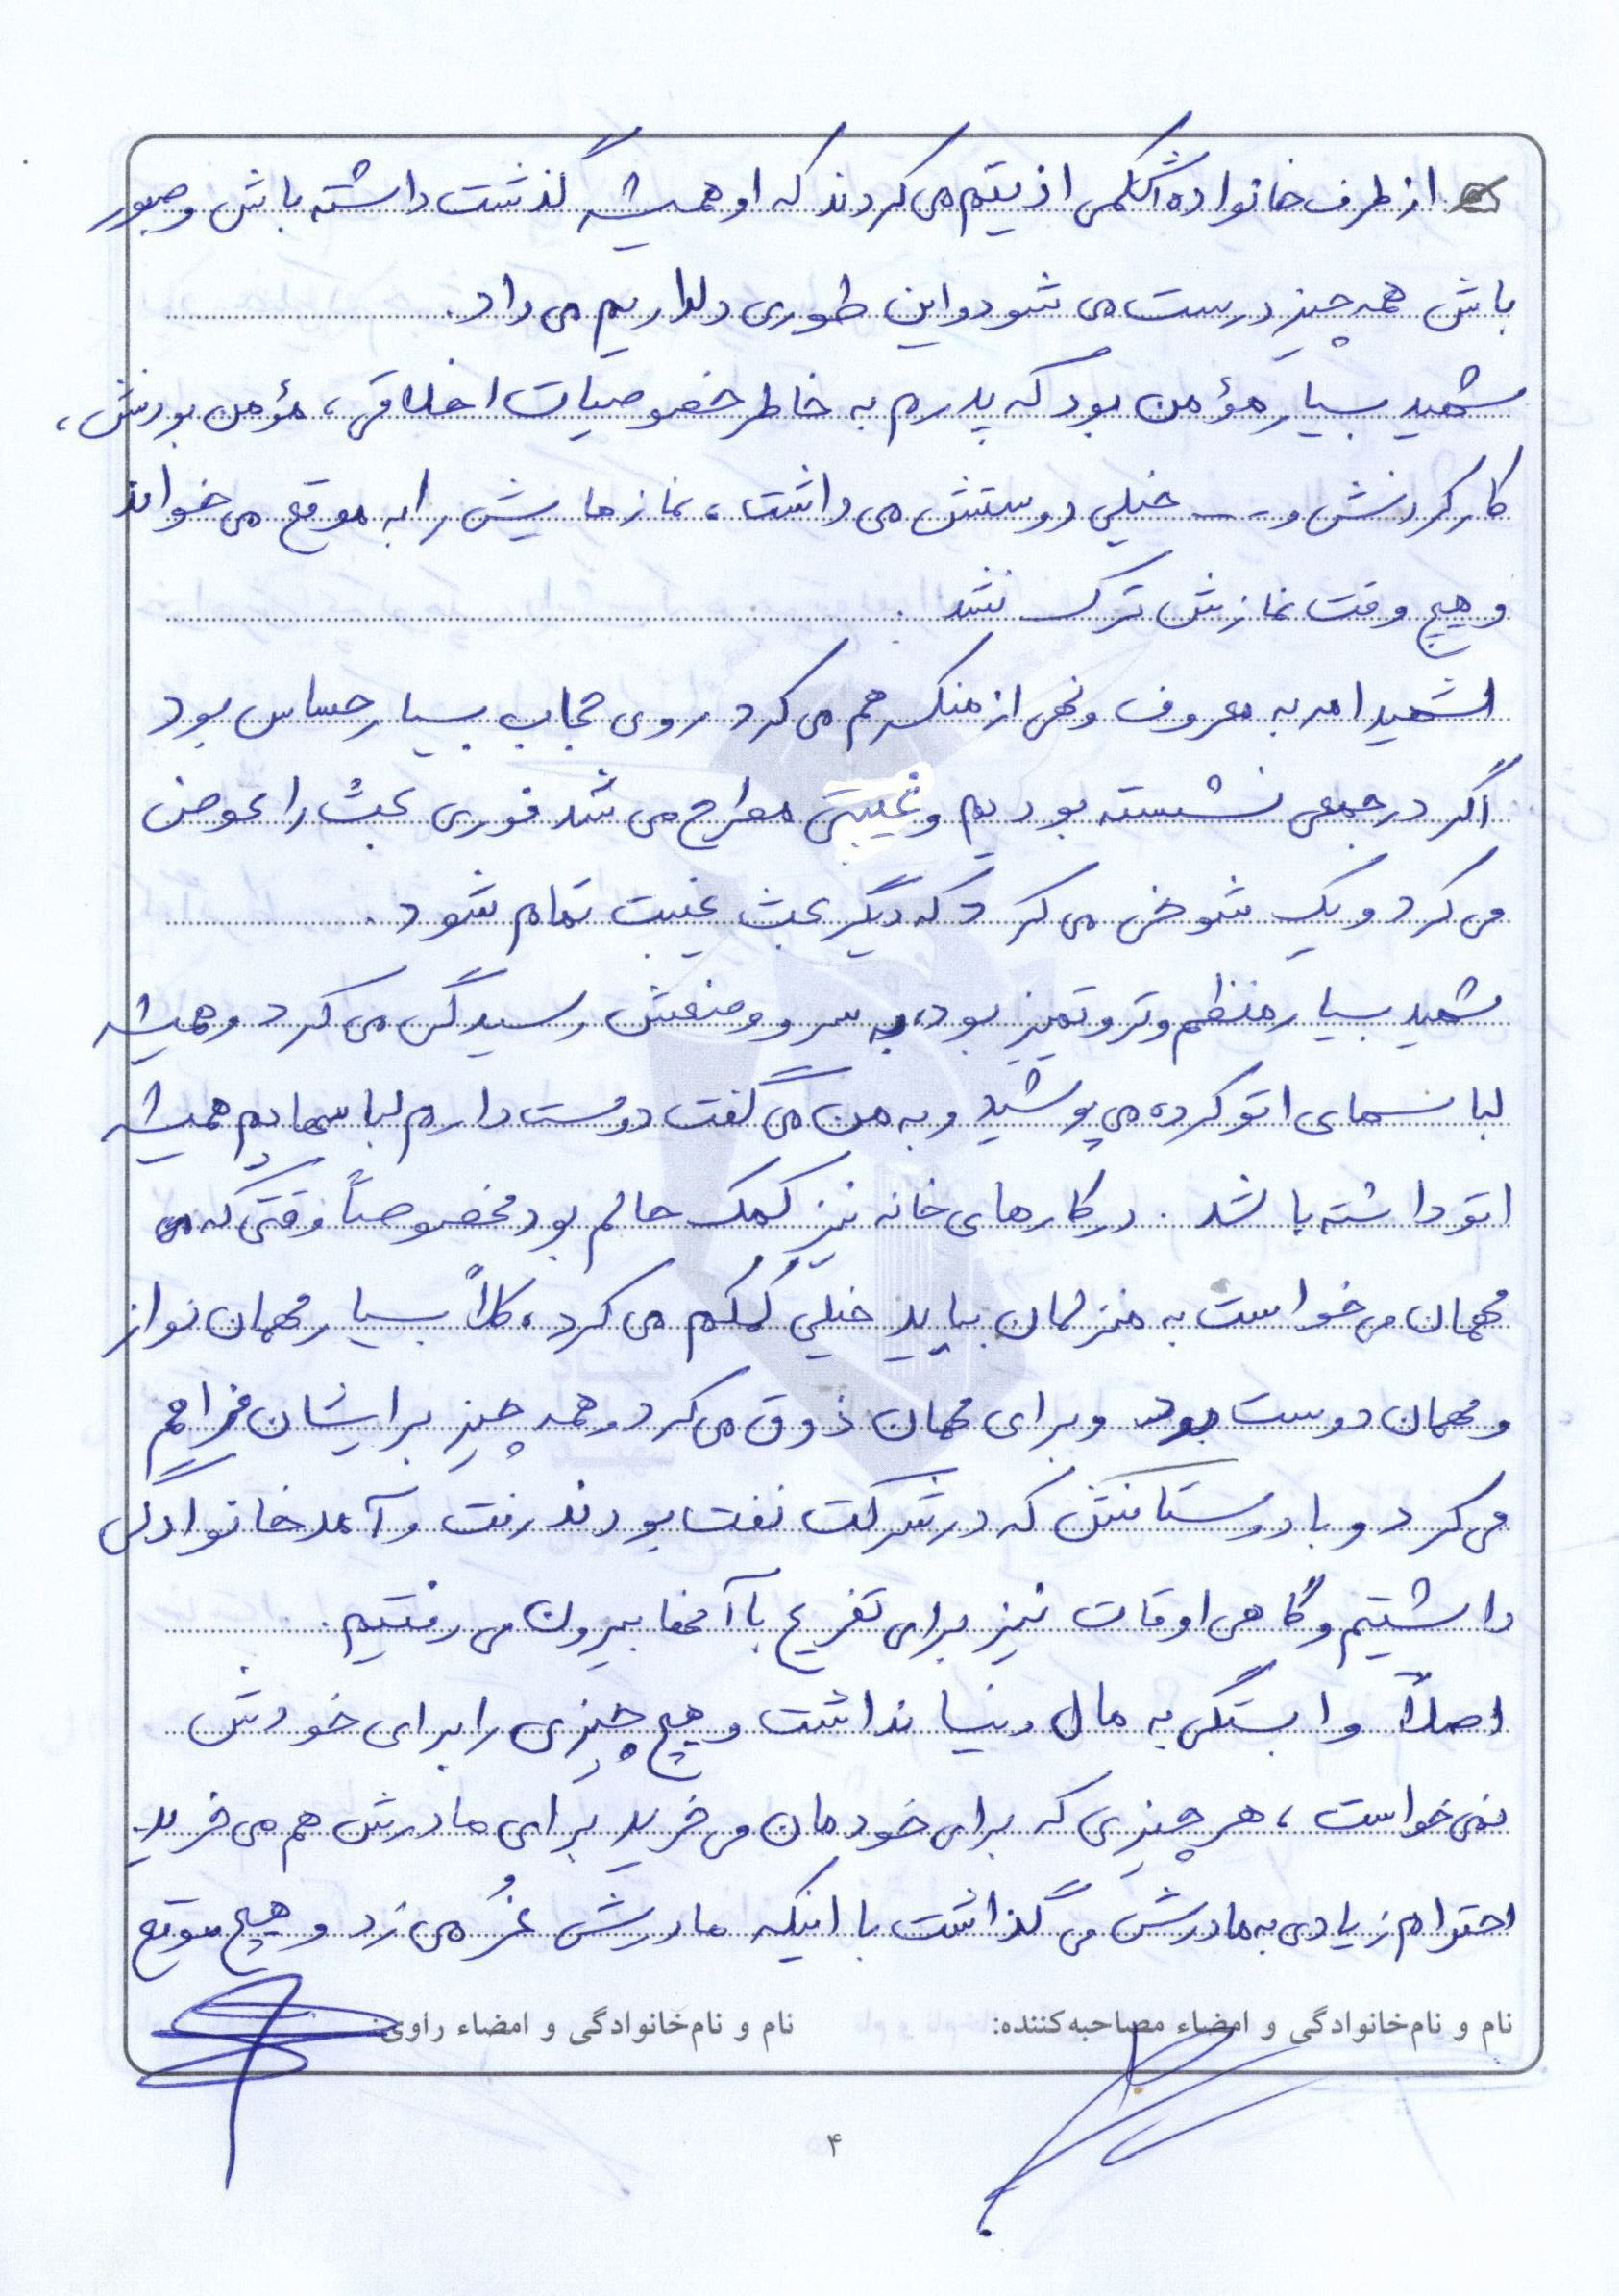 از طرف خانواده اش کمی اذیتم می کردند که او همیشه گذشت داشته باش و صبور
باش همه چیز درست می شود و این طوری دلداریم می داد.
شهید بسیار مؤمن بود که پدرم به خاطر خصوصیات اخلاقی، مؤمن بودنش،
کار کردنش و --- خیلی دوستش می داشت، نمازهایش را به موقع می خواند
و هیچ وقت نمازش ترک نشد.
شهید امر به معروف و نهی از منکر هم می کرد روی حجاب بسیار حساس بود
اگر در جمعی نشسته بودیم و غیبتی مطرح می شد فوری بحث را عوض
می کرد و یک شوخی می کرد که دیگر بحث غیبت تمام شود.
شهید بسیار منظم و تر و تمیز بود، به سر و وضعش رسیدگی می کرد و همیشه
لباسهای اتو کرده می پوشید و به من می گفت دوست دارم لباسهایم همیشه
اتو داشته باشد. در کارهای خانه نیز کمک حالم بود مخصوصاً وقتی که
مهمان می خواست به منزلمان بیاید خیلی کمکم می کرد، کلاً بسیار مهمان نواز
و مهمان دوست بود و برای مهمان ذوق می کرد و همه چیز برایشان فراهم
می کرد و با دوستانش که در شرکت نفت بودند رفت و آمد خانوادگی
داشتیم و گاهی اوقات نیز برای تفریح با آنها بیرون می رفتیم.
اصلاً وابستگی به مال دنیا نداشت و هیچ چیزی را برای خودش
نمی خواست، هر چیزی که برای خودمان می خرید برای مادرش هم می خرید.
احترام زیادی به مادرش می گذاشت با اینکه مادرش غُر می زد و هیچ موقع
نام و نام‌خانوادگی و امضاء مصاحبه‌کننده: نام و نام‌خانوادگی و امضاء راوی:
۴